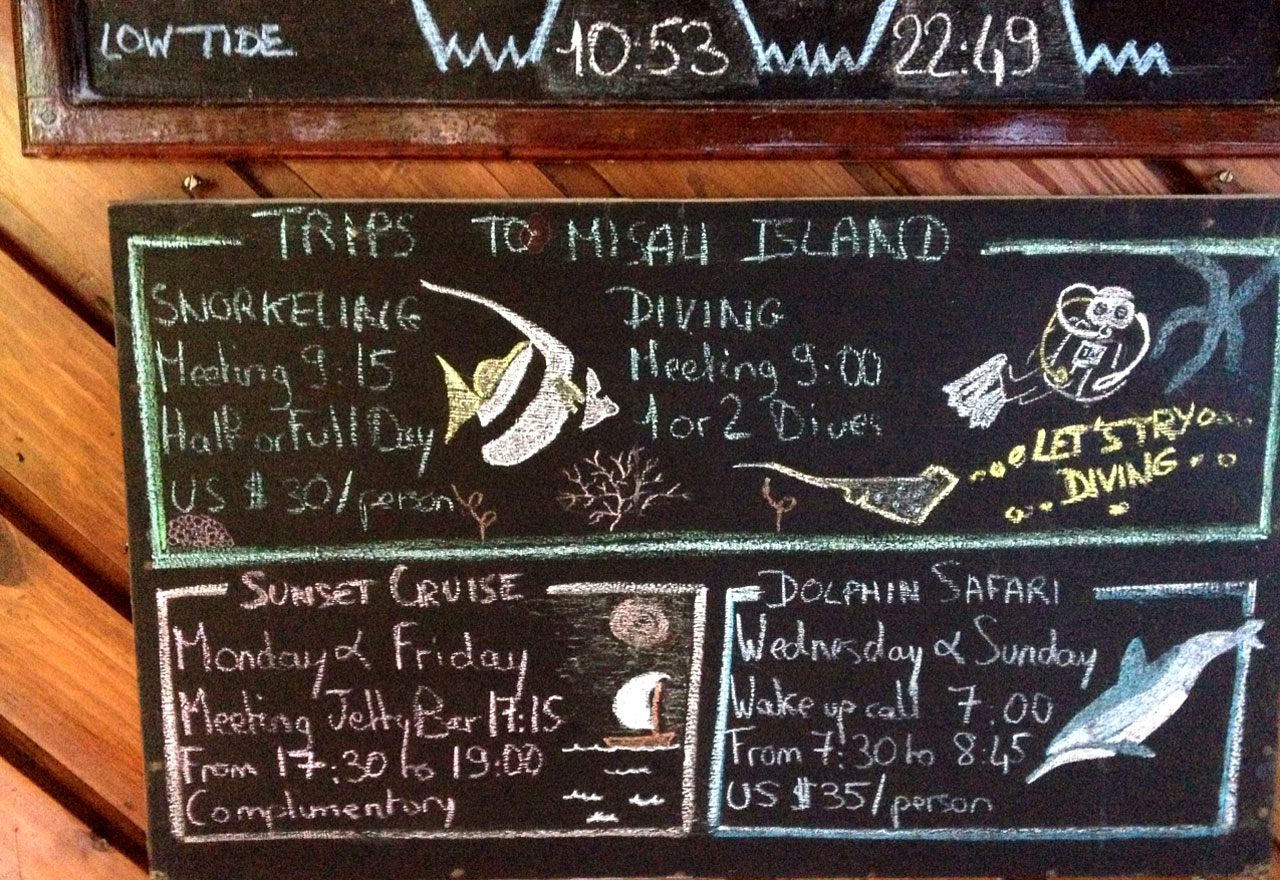 LOW TIDE 10:53 22:49
TRIPS TO MISALI ISLAND
SNORKELING
Meeting 9:15
Half or Full Day
US $30/person
DIVING
Meeting 9:00
1 or 2 Dives
LET'S TRY
DIVING
SUNSET CRUISE
Monday & Friday
Meeting Jetty Bar 17:15
From 17:30 to 19:00
Complimentary
DOLPHIN SAFARI
Wednesday & Sunday
Wake up call 7.00
From 7:30 to 8:45
US $35/person